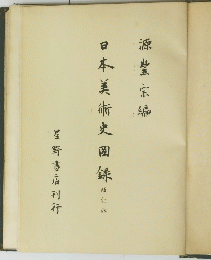 源豊宗編
日本美術史図録
星野書店刊行